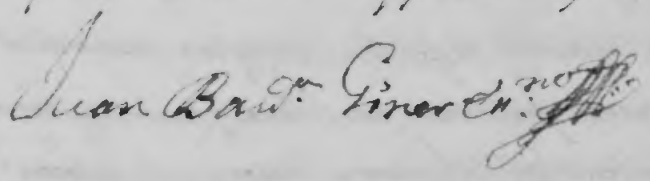 Juan Baut.ª Giner Es.no